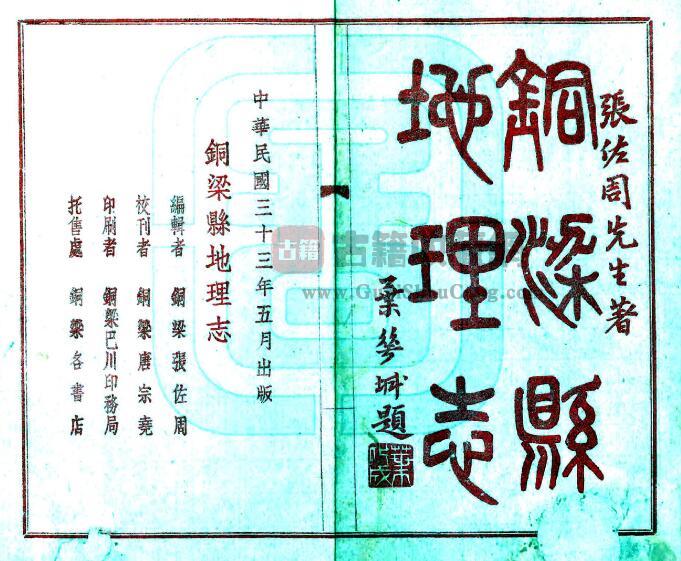 張佐周先生著
銅梁縣
地理志
城題
中華民國三十三年五月出版
銅梁縣地理志
編輯者 銅梁張佐周
校刊者 銅梁唐宗堯
印刷者 銅梁巴川印務局
托售處 銅梁各書店
古籍